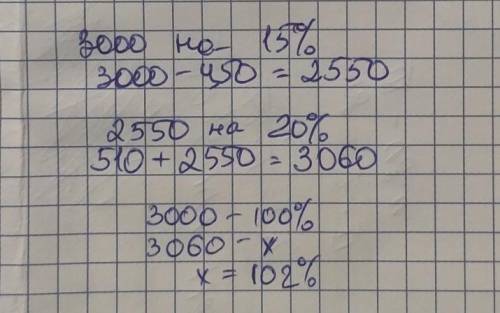 3000 на 15%
3000 - 450 = 2550
2550 на 20%
510 + 2550 = 3060
3000 - 100%
3060 - x
x = 102%